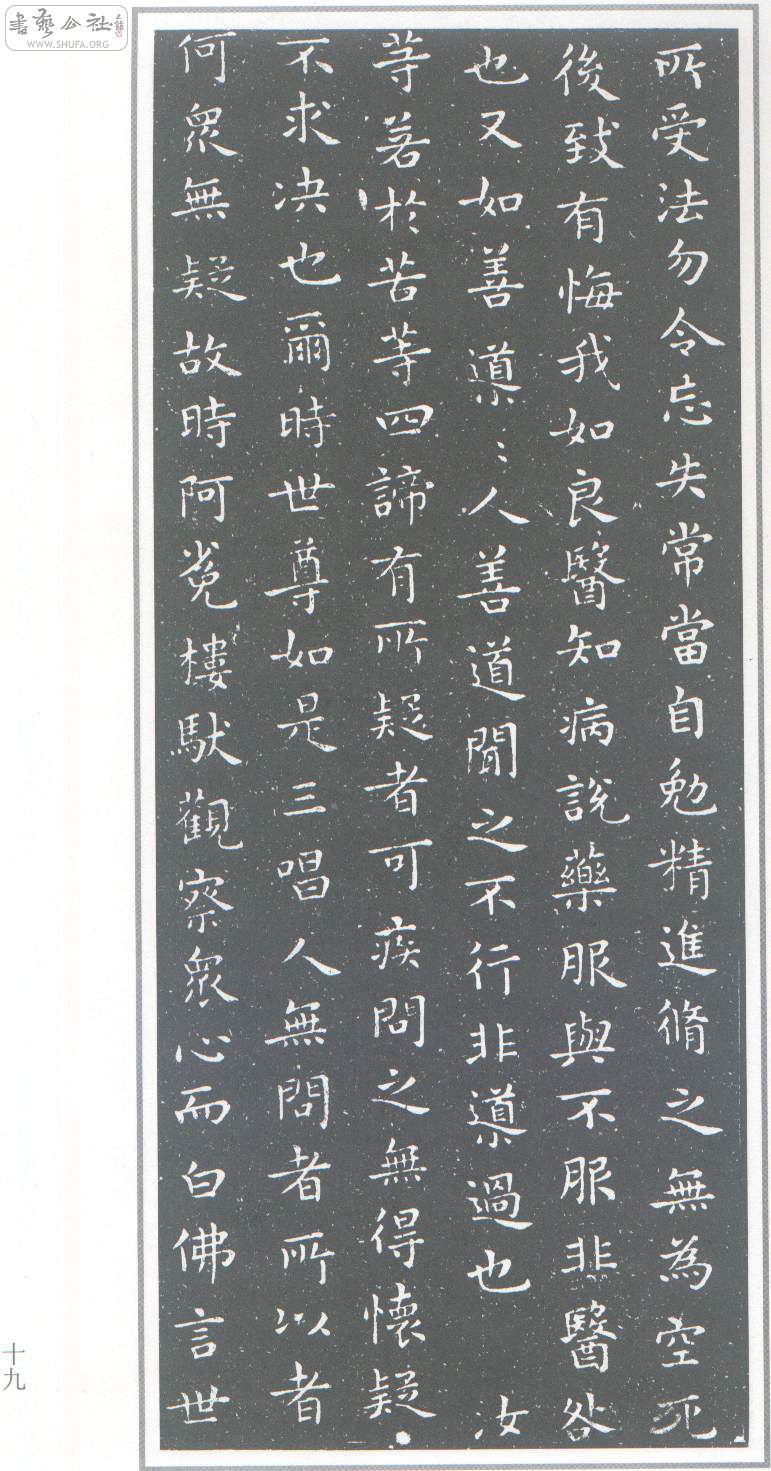 所受法勿令忘失常當自勉精進脩之無為空死
後致有悔我如良醫知病說藥服與不服非醫咎
也又如善導〻人善道聞之不行非導過也 汝
等若於苦等四諦有所疑者可疾問之無得懷疑
不求決也爾時世尊如是三唱人無問者所以者
何眾無疑故時阿㝹樓馱觀察眾心而白佛言世
十九
書藝公社
WWW.SHUFA.ORG